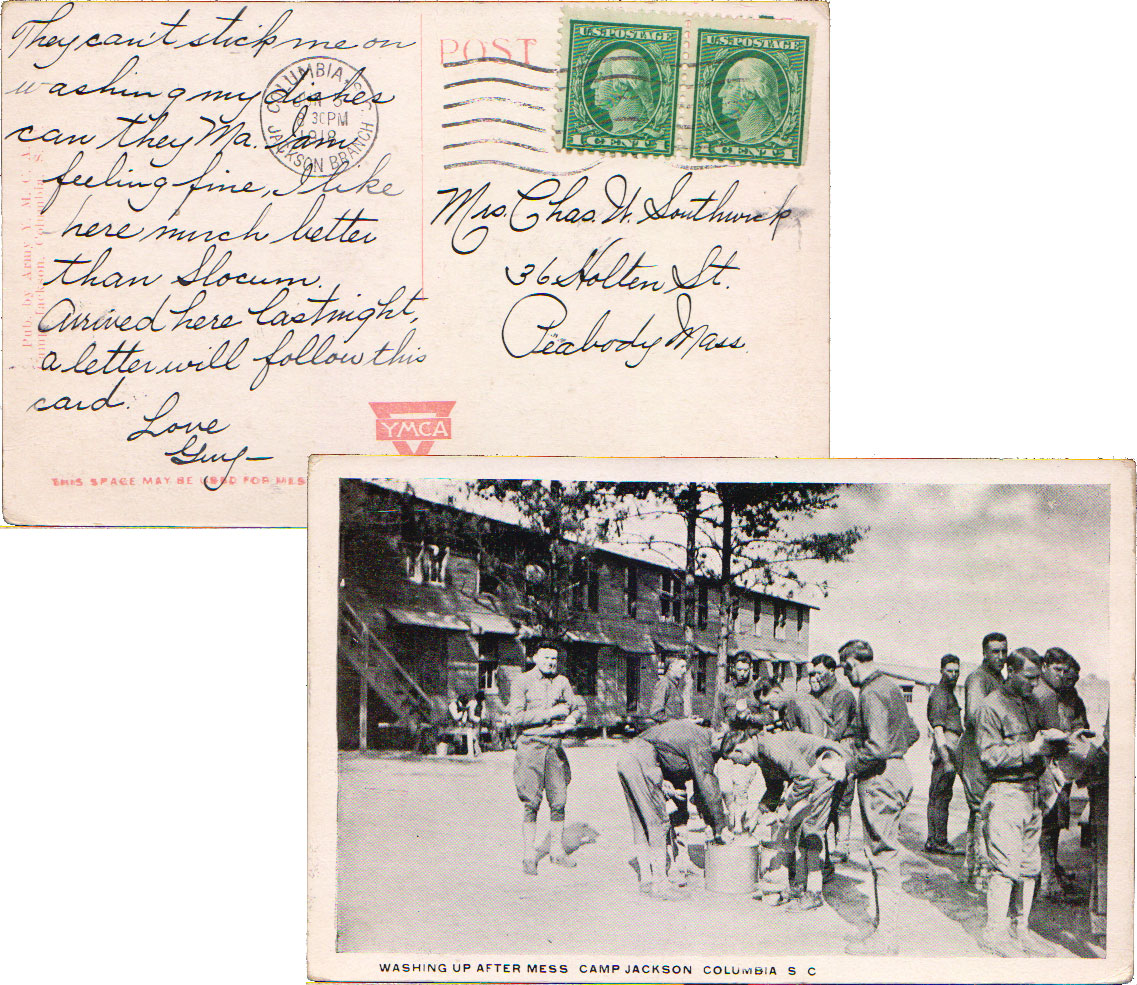 They can't stick me on
washing my dishes
can they Ma. I am
feeling fine, I like
here much better
than Slocum.
Arrived here last night,
a letter will follow this
card.
Love
Guy
Pub. by Army Y. M. C. A.
Camp Jackson, Columbia, S.
THIS SPACE MAY BE USED FOR MES
YMCA
POST
COLUMBIA, S.C.
30 PM
JACKSON BRANCH
U.S. POSTAGE
1 CENT 1
U.S. POSTAGE
1 CENT 1
Mrs. Chas. W. Southwick
36 Holten St.
Peabody Mass.
WASHING UP AFTER MESS CAMP JACKSON COLUMBIA S C